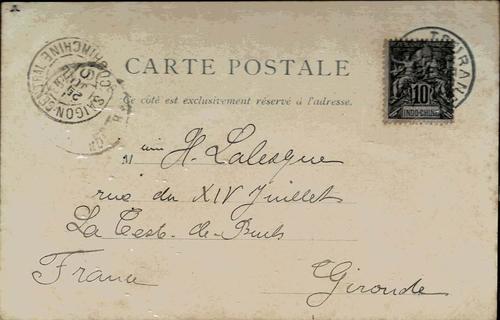 CARTE POSTALE
Ce côté est exclusivement réservé à l'adresse.
TOURANE
10
INDO-CHINE
SAIGON-CENTRAL
COCHINCHINE
H. Lalesque
rue du XIV Juillet
La Teste-de-Buch
France
Gironde